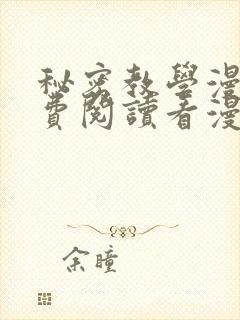 秘密教學漫
費閱讀看漫
余瞳